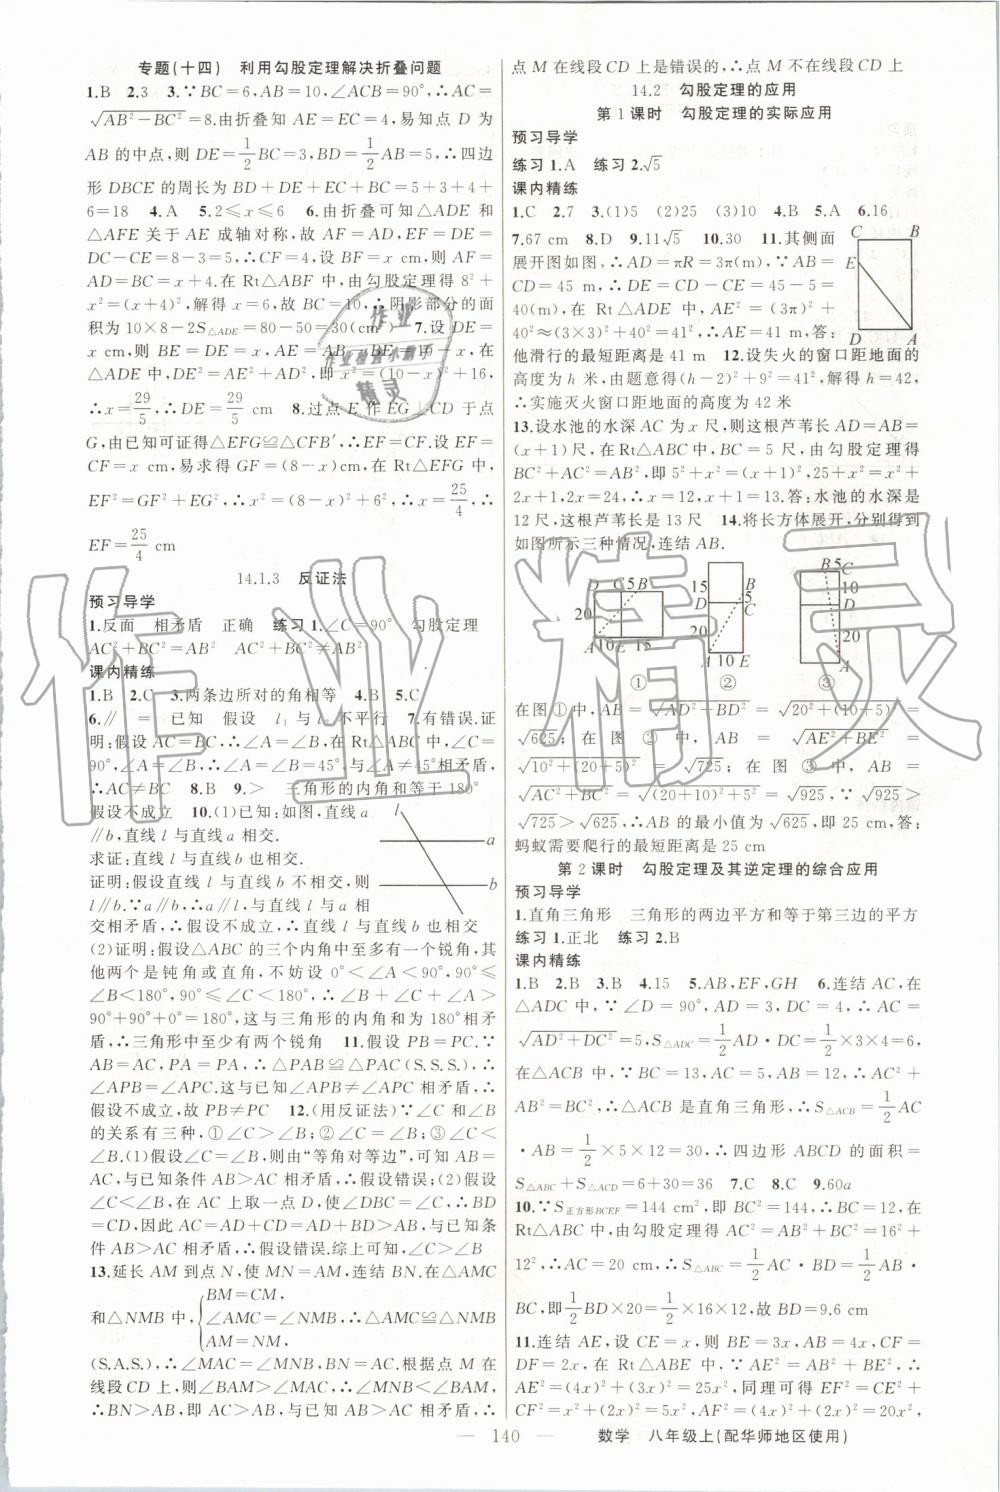 专题(十四)　利用勾股定理解决折叠问题
1.B　2.3　3.∵BC=6,AB=10,∠ACB=90°,∴AC=
√(AB²-BC²)=8.由折叠知 AE=EC=4,易知点 D 为
AB 的中点,则 DE=1/2BC=3,BD=1/2AB=5,∴四边
形 DBCE 的周长为 BD+DE+EC+BC=5+3+4+
6=18　4.A　5.2≤x≤6　6.由折叠可知△ADE 和
△AFE 关于 AE 成轴对称,故 AF=AD,EF=DE=
DC-CE=8-3=5,∴CF=4.设 BF=x cm,则 AF=
AD=BC=x+4.在 Rt△ABF 中,由勾股定理得 8²+
x²=(x+4)²,解得 x=6,故 BC=10.∴阴影部分的面
积为 10×8-2S△ADE=80-50=30(cm²)　7.设 DE=
x cm,则 BE=DE=x,AE=AB-BE=10-x,
DE²=AE²+AD²,即 x²=(10-x)²+16,
∴x=29/5,∴DE=29/5 cm　8.过点 E 作 EG⊥CD 于点
G,由已知可证得△EFG≌△CFB′,∴EF=CF.设 EF=
CF=x cm,易求得 GF=(8-x)cm,在 Rt△EFG 中,
EF²=GF²+EG²,∴x²=(8-x)²+6²,∴x=25/4,∴
EF=25/4 cm
14.1.3　反证法
预习导学
1.反面　相矛盾　正确　练习 1.∠C=90°　勾股定理
AC²+BC²=AB²　AC²+BC²≠AB²
课内精练
1.B　2.C　3.两条边所对的角相等　4.B　5.C
6.∥　=　已知　假设　l₁与 l₂ 不平行　7.有错误.证
明:假设 AC=BC,∴∠A=∠B.在 Rt△ABC 中,∠C=
90°,∴∠A=∠B=45°,与∠A≠45°与∠A≠45°相矛盾,
∴AC≠BC　8.B　9.>　三角形的内角和等于 180°
假设不成立　10.(1)已知:如图,直线 a
∥b,直线 l 与直线 a 相交.
求证:直线 l 与直线 b 也相交.
证明:假设直线 l 与直线 b 不相交,则
l∥b.∵a∥b,∴a∥l,与直线 l 与直线 a
相交矛盾,∴假设不成立,∴直线 l 与直线 b 也相交
(2)证明:假设△ABC 的三个内角中至多有一个锐角,其
他两个是钝角或直角,不妨设 0°<∠A<90°,90°≤
∠B<180°,90°≤∠C<180°,∴∠A+∠B+∠C>
90°+90°+0°=180°,这与三角形的内角和为 180°相矛
盾,∴三角形中至少有两个锐角　11.假设 PB=PC.∵
AB=AC,PA=PA,∴△PAB≌△PAC(S.S.S.),∴
∠APB=∠APC.这与已知∠APB≠∠APC 相矛盾,∴
假设不成立,故 PB≠PC　12.(用反证法)∵∠C 和∠B
的关系有三种,①∠C>∠B;②∠C=∠B;③∠C<
∠B.(1)假设∠C=∠B,则由“等角对等边”,可知 AB=
AC,与已知条件 AB>AC 相矛盾,∴假设错误;(2)假设
∠C<∠B,在 AC 上取一点 D,使∠DBC=∠C,∴BD
=CD,因此 AC=AD+CD=AD+BD>AB,与已知条
件 AB>AC 相矛盾,∴假设错误.综上可知,∠C>∠B
13.延长 AM 到点 N,使 MN=AM,连结 BN.在△AMC
和△NMB 中,{BM=CM,
∠AMC=∠NMB,
AM=NM,
∴△AMC≌△NMB
(S.A.S.),∴∠MAC=∠MNB,BN=AC.根据点 M 在
线段 CD 上,则∠BAM>∠MAC,∴∠MNB<∠BAM,
∴BN>AB,即 AC>AB,与 AB=AC 相矛盾,∴假设
点 M 在线段 CD 上是错误的,∴点 M 不在线段 CD 上
14.2　勾股定理的应用
第 1 课时　勾股定理的实际应用
预习导学
练习 1.A　练习 2.√5
课内精练
1.C　2.7　3.(1)5　(2)25　(3)10　4.B　5.A　6.16
7.67 cm　8.D　9.11√5　10.30　11.其侧面
展开图如图,∴AD=πR=3π(m).∵AB=
CD=45 m,∴DE=CD-CE=45-5=
40(m),在 Rt△ADE 中,AE²=(3π)²+
40²≈(3×3)²+40²=41²,∴AE=41 m,答:
他滑行的最短距离是 41 m　12.设失火的窗口距地面的
高度为 h 米,由题意得(h-2)²+9²=41²,解得 h=42,
∴实施灭火窗口距地面的高度为 42 米
13.设水池的水深 AC 为 x 尺,则这根芦苇长 AD=AB=
(x+1)尺,在 Rt△ABC 中,BC=5 尺,由勾股定理得
BC²+AC²=AB²,即 5²+x²=(x+1)²,25+x²=x²+
2x+1,2x=24,解得 x=12,x+1=13.答:水池的水深是
12 尺,这根芦苇长是 13 尺　14.将长方体展开,分别得到
如图所示三种情况,连结 AB.
①　②　③
在图①中,AB=√(AD²+BD²)=√(20²+(10+5)²)=
√625;在图②中,AB=√(AE²+BE²)=
√(10²+(20+5)²)=√725;在图③中,AB=
√(AC²+BC²)=√((20+10)²+5²)=√925.∵√925>
√725>√625,∴AB 的最小值为√625,即 25 cm,答:
蚂蚁需要爬行的最短距离是 25 cm
第 2 课时　勾股定理及其逆定理的综合应用
预习导学
1.直角三角形　三角形的两边平方和等于第三边的平方
练习 1.正北　练习 2.B
课内精练
1.B　2.B　3.B　4.15　5.AB,EF,GH　6.连结 AC,在
△ADC 中,∵∠D=90°,AD=3,DC=4,∴AC=
√(AD²+DC²)=5,S△ADC=1/2AD·DC=1/2×3×4=6,
在△ACB 中,∵BC=13,AC=5,AB=12,∴AC²+
AB²=BC²,∴△ACB 是直角三角形,∴S△ACB=1/2AC
·AB=1/2×5×12=30,∴四边形 ABCD 的面积=
S△ABC+S△ACD=6+30=36　7.C　8.C　9.60a
10.∵S正方形BCEF=144 cm²,即 BC²=144,∴BC=12,在
Rt△ABC 中,由勾股定理得 AC²=AB²+BC²=16²+
12²,∴AC=20 cm,∴S△ABC=1/2AC·BD=1/2AB·
BC,即1/2BD×20=1/2×16×12,故 BD=9.6 cm
11.连结 AE,设 CE=x,则 BE=3x,AB=4x,CF=
DF=2x,在 Rt△ABE 中,∵AE²=AB²+BE²,∴
AE²=(4x)²+(3x)²=25x²,同理可得 EF²=CE²+
CF²=x²+(2x)²=5x²,AF²=(4x)²+(2x)²=20x²,
— 140 —　数学　八年级上(配华师地区使用)